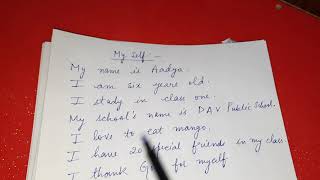 My Self :-
My name is Aadya.
I am six years old.
I study in class one.
My school's name is DAV Public School.
I love to eat mango.
I have 20 special friends in my class.
I thank God for myself